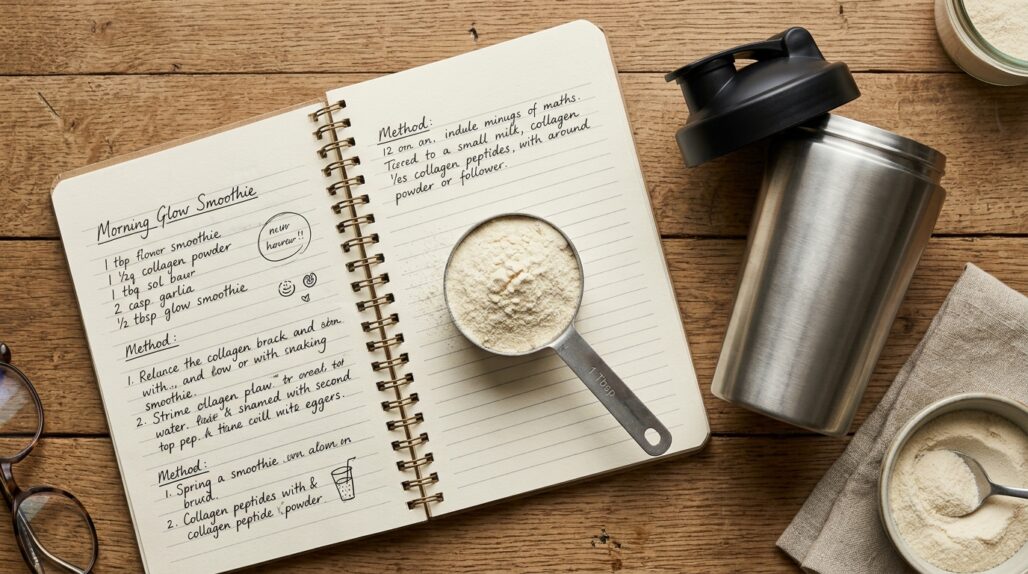 Morning Glow Smoothie
1 tbp flower smoothie
1 ½q collagen powder
1 tbq sol baur
2 casp garlia
½ tbsp glow smoothie
Method:
1. Relance the collagen brack and
with... and low or with snaking
smoothie.
2. Strime collagen plaw
water. & shamed with second
top pep. & tiane coill with eggers.
Method:
1. Spring a smoothie alown on
2. Collagen peptides with &
collagen peptide powder.
Method:
12 om an, indule minugs of maths.
Tcered to a small milk, collagen
⅟es collagen peptides, with around
powder or follower.
1 Tbsp